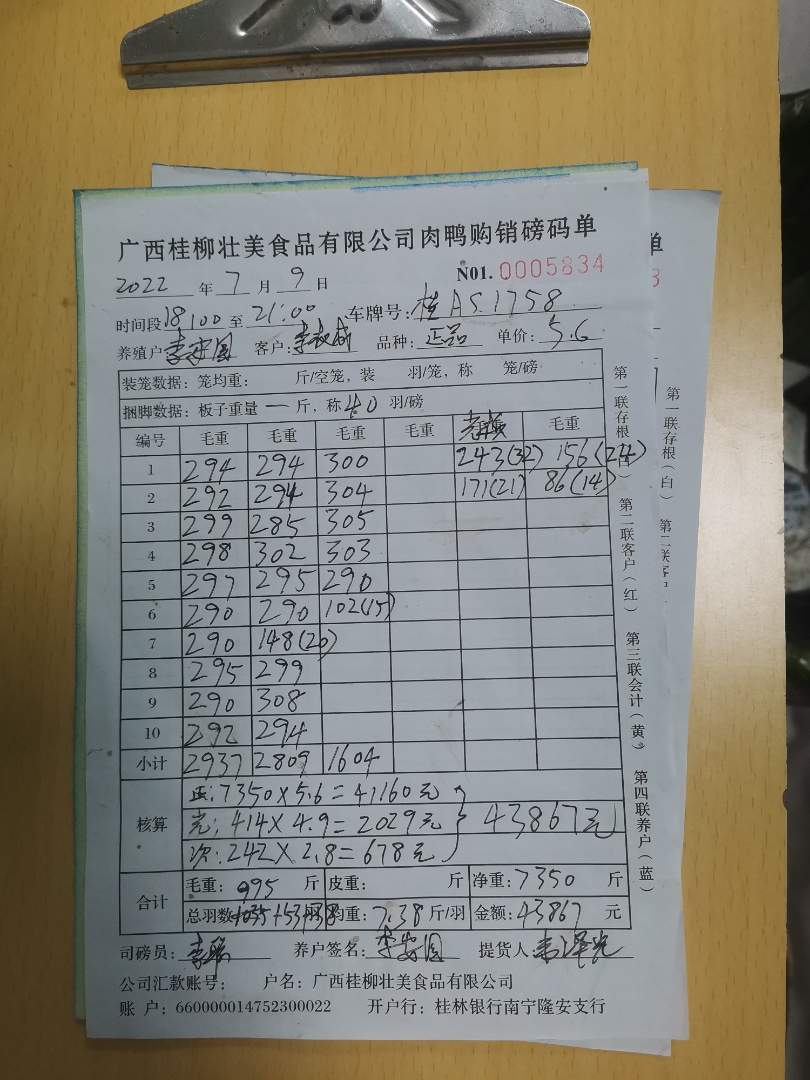 广西桂柳壮美食品有限公司肉鸭购销磅码单
2022 年 7 月 9 日 N01. 0005834
时间段 18:00 至 21:00 车牌号: 桂AS1758
养殖户 李安国 客户: 品种: 正品 单价: 5.6
装笼数据: 笼均重: 斤/空笼, 装 羽/笼, 称 笼/磅
捆脚数据: 板子重量 一 斤, 称 40 羽/磅
编号 毛重 毛重 毛重 毛重 毛重
1 294 294 300 243(32) 156(24)
2 292 294 304 171(21) 86(14)
3 299 285 305
4 298 302 303
5 297 295 290
6 290 290 102(15)
7 290 148(20)
8 295 299
9 290 308
10 292 294
小计 2937 2809 1604
核算
正: 7350×5.6=41160元
光: 414×4.9=2029元 43867元
次: 242×2.8=678元
合计
毛重: 995 斤 皮重: 斤 净重: 7350 斤
总羽数 均重: 7.38 斤/羽 金额: 43867 元
司磅员: 养户签名: 李安国 提货人:
公司汇款账号: 户名: 广西桂柳壮美食品有限公司
账 户: 660000014752300022 开户行: 桂林银行南宁隆安支行
第一联存根(白) 第二联客户(红) 第三联会计(黄) 第四联养户(蓝)
单
3
第一联存根(白) 第二联客